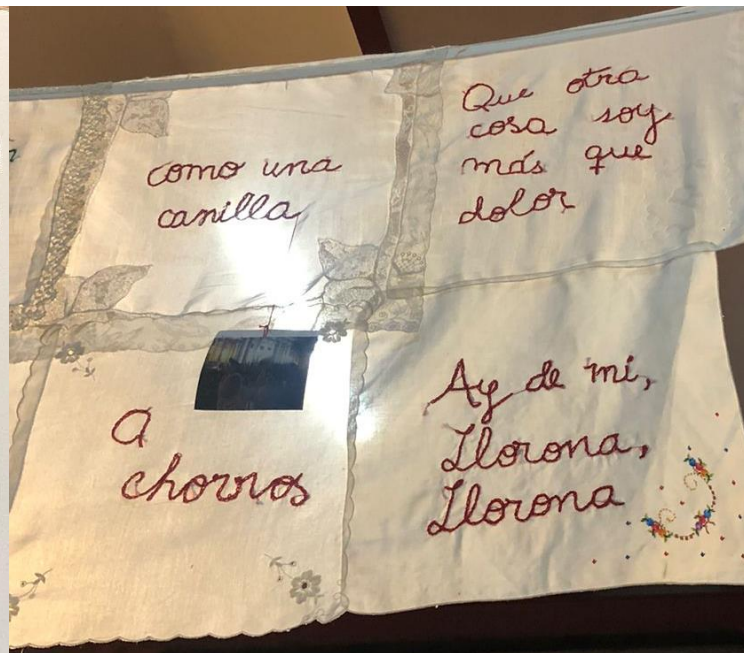 como una
canilla
Que otra
cosa soy
más que
dolor
A
chorros
Ay de mi,
Llorona,
Llorona